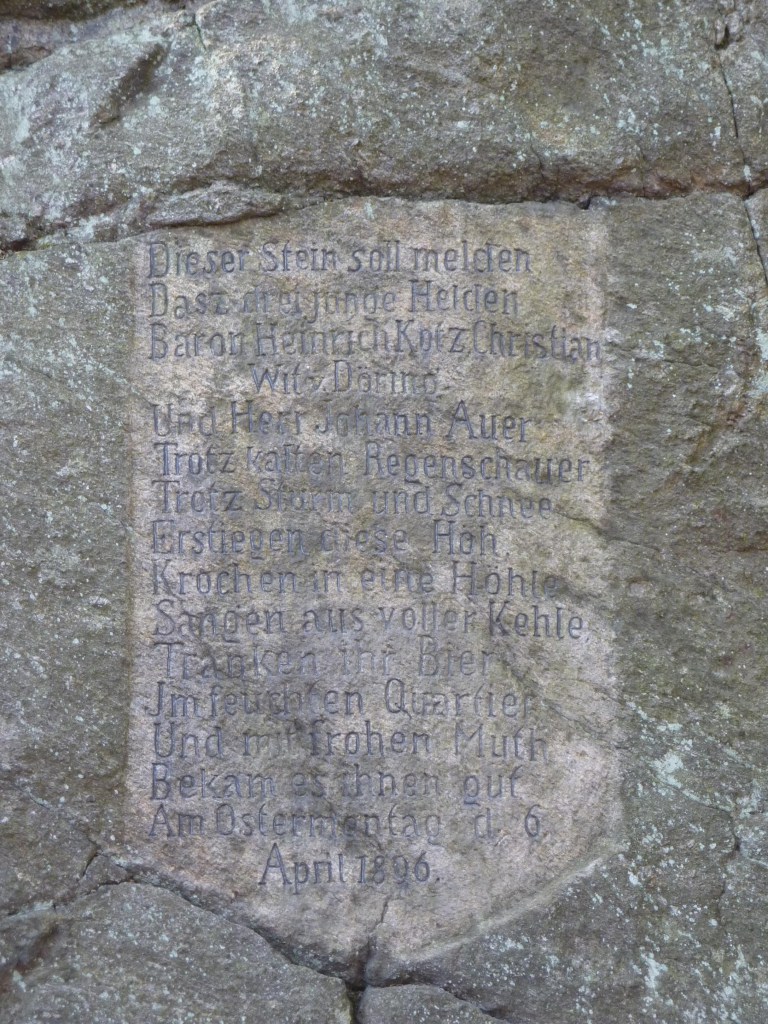 Dieser Stein soll melden
Dasz drei junge Helden
Baron Heinrich Kotz, Christian
Witz, Döring
Und Herr Johann Auer
Trotz kalten Regenschauer
Trotz Sturm und Schnee
Erstiegen diese Höh,
Krochen in eine Höhle
Sangen aus voller Kehle,
Tranken ihr Bier
Jm feuchten Quartier
Und mit frohen Muth
Bekam es ihnen gut
Am Ostermontag d. 6.
April 1896.